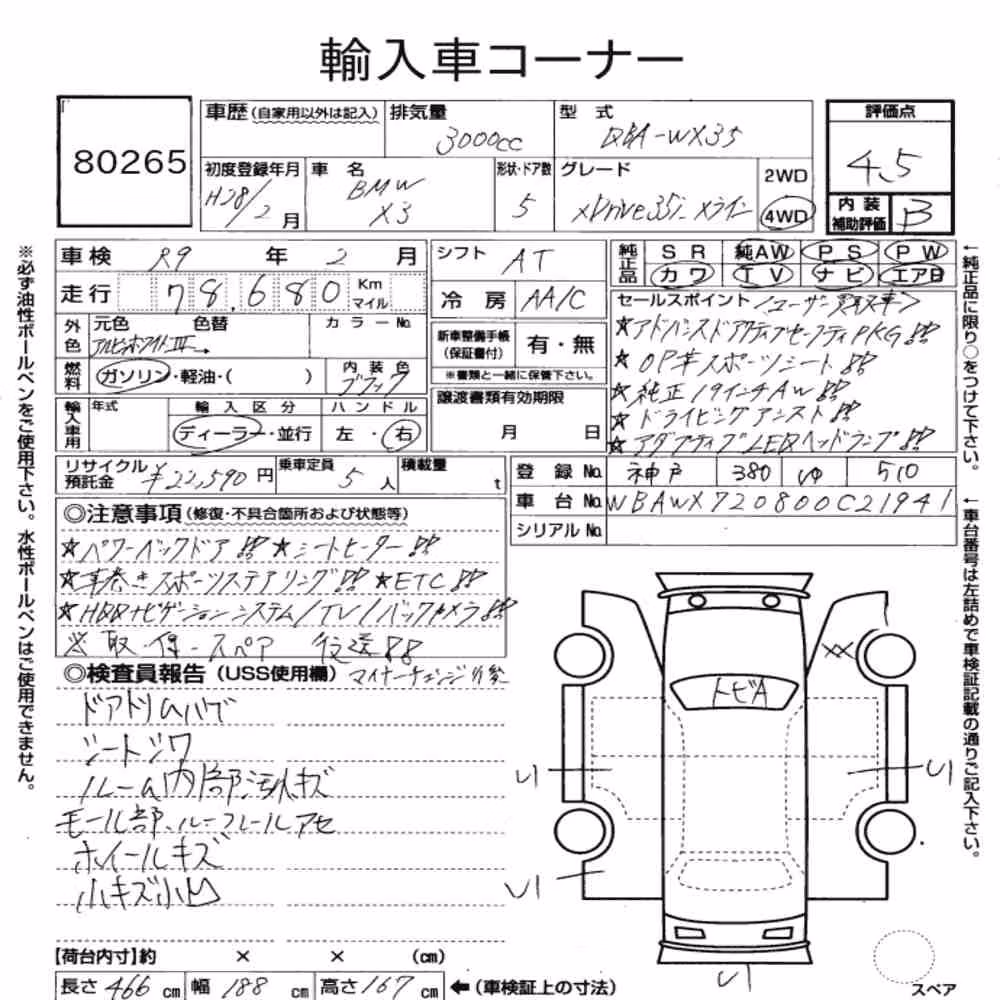 輸入車コーナー
80265
車歴(自家用以外は記入) 排気量 3000cc 型式 DBA-WX35 評価点 4.5
初度登録年月 H28/2月 車名 BMW X3 形状・ドア数 5 グレード xDrive35i Xライン 2WD 4WD 内装補助評価 B
車検 R9年2月 シフト AT 純正品 SR 純AW PS PW
カワ TV ナビ エアB
走行 78,680 Km マイル 冷房 AA/C
セールスポイント <ユーザー買取車>
外色 元色 色替 カラーNo.
アルピンホワイトIII
新車整備手帳(保証書付) 有・無
※書類と一緒に保管下さい。
★アドバンスドアクティブセーフティPKG付
★OP革スポーツシート付
★純正19インチAW付
★ドライビングアシスト付
★アダプティブLEDヘッドランプ付
燃料 ガソリン・軽油・( ) 内装色 ブラック
輸入車用 年式 輸入区分 ハンドル
ディーラー・並行 左・右
譲渡書類有効期限 月 日
リサイクル預託金 ¥22,590円 乗車定員 5人 積載量 t
登録No. 神戸 380 ゆ 510
車台No. WBAWX720800C21941
シリアルNo.
◎注意事項(修復・不具合箇所および状態等)
★パワーバックドア付 ★シートヒーター付
★革巻きスポーツステアリング付 ★ETC付
★HDDナビゲーションシステム/TV/バックカメラ付
※取・保・スペア 後送付
◎検査員報告(USS使用欄) マイナーチェンジ後
ドアトリムハゲ
シートシワ
ルーム内部汚れキズ
モール部、ルーフレールアセ
ホイールキズ
小キズ小凹
トビA
XX
U1
U1
U1
U1
スペア
【荷台内寸】約 × × (cm)
長さ 466cm 幅 188cm 高さ 167cm ←(車検証上の寸法)
※必ず油性ボールペンをご使用下さい。水性ボールペンはご使用できません。
←純正品に限り○をつけて下さい。
←車台番号は左詰めで車検証記載の通りご記入下さい。